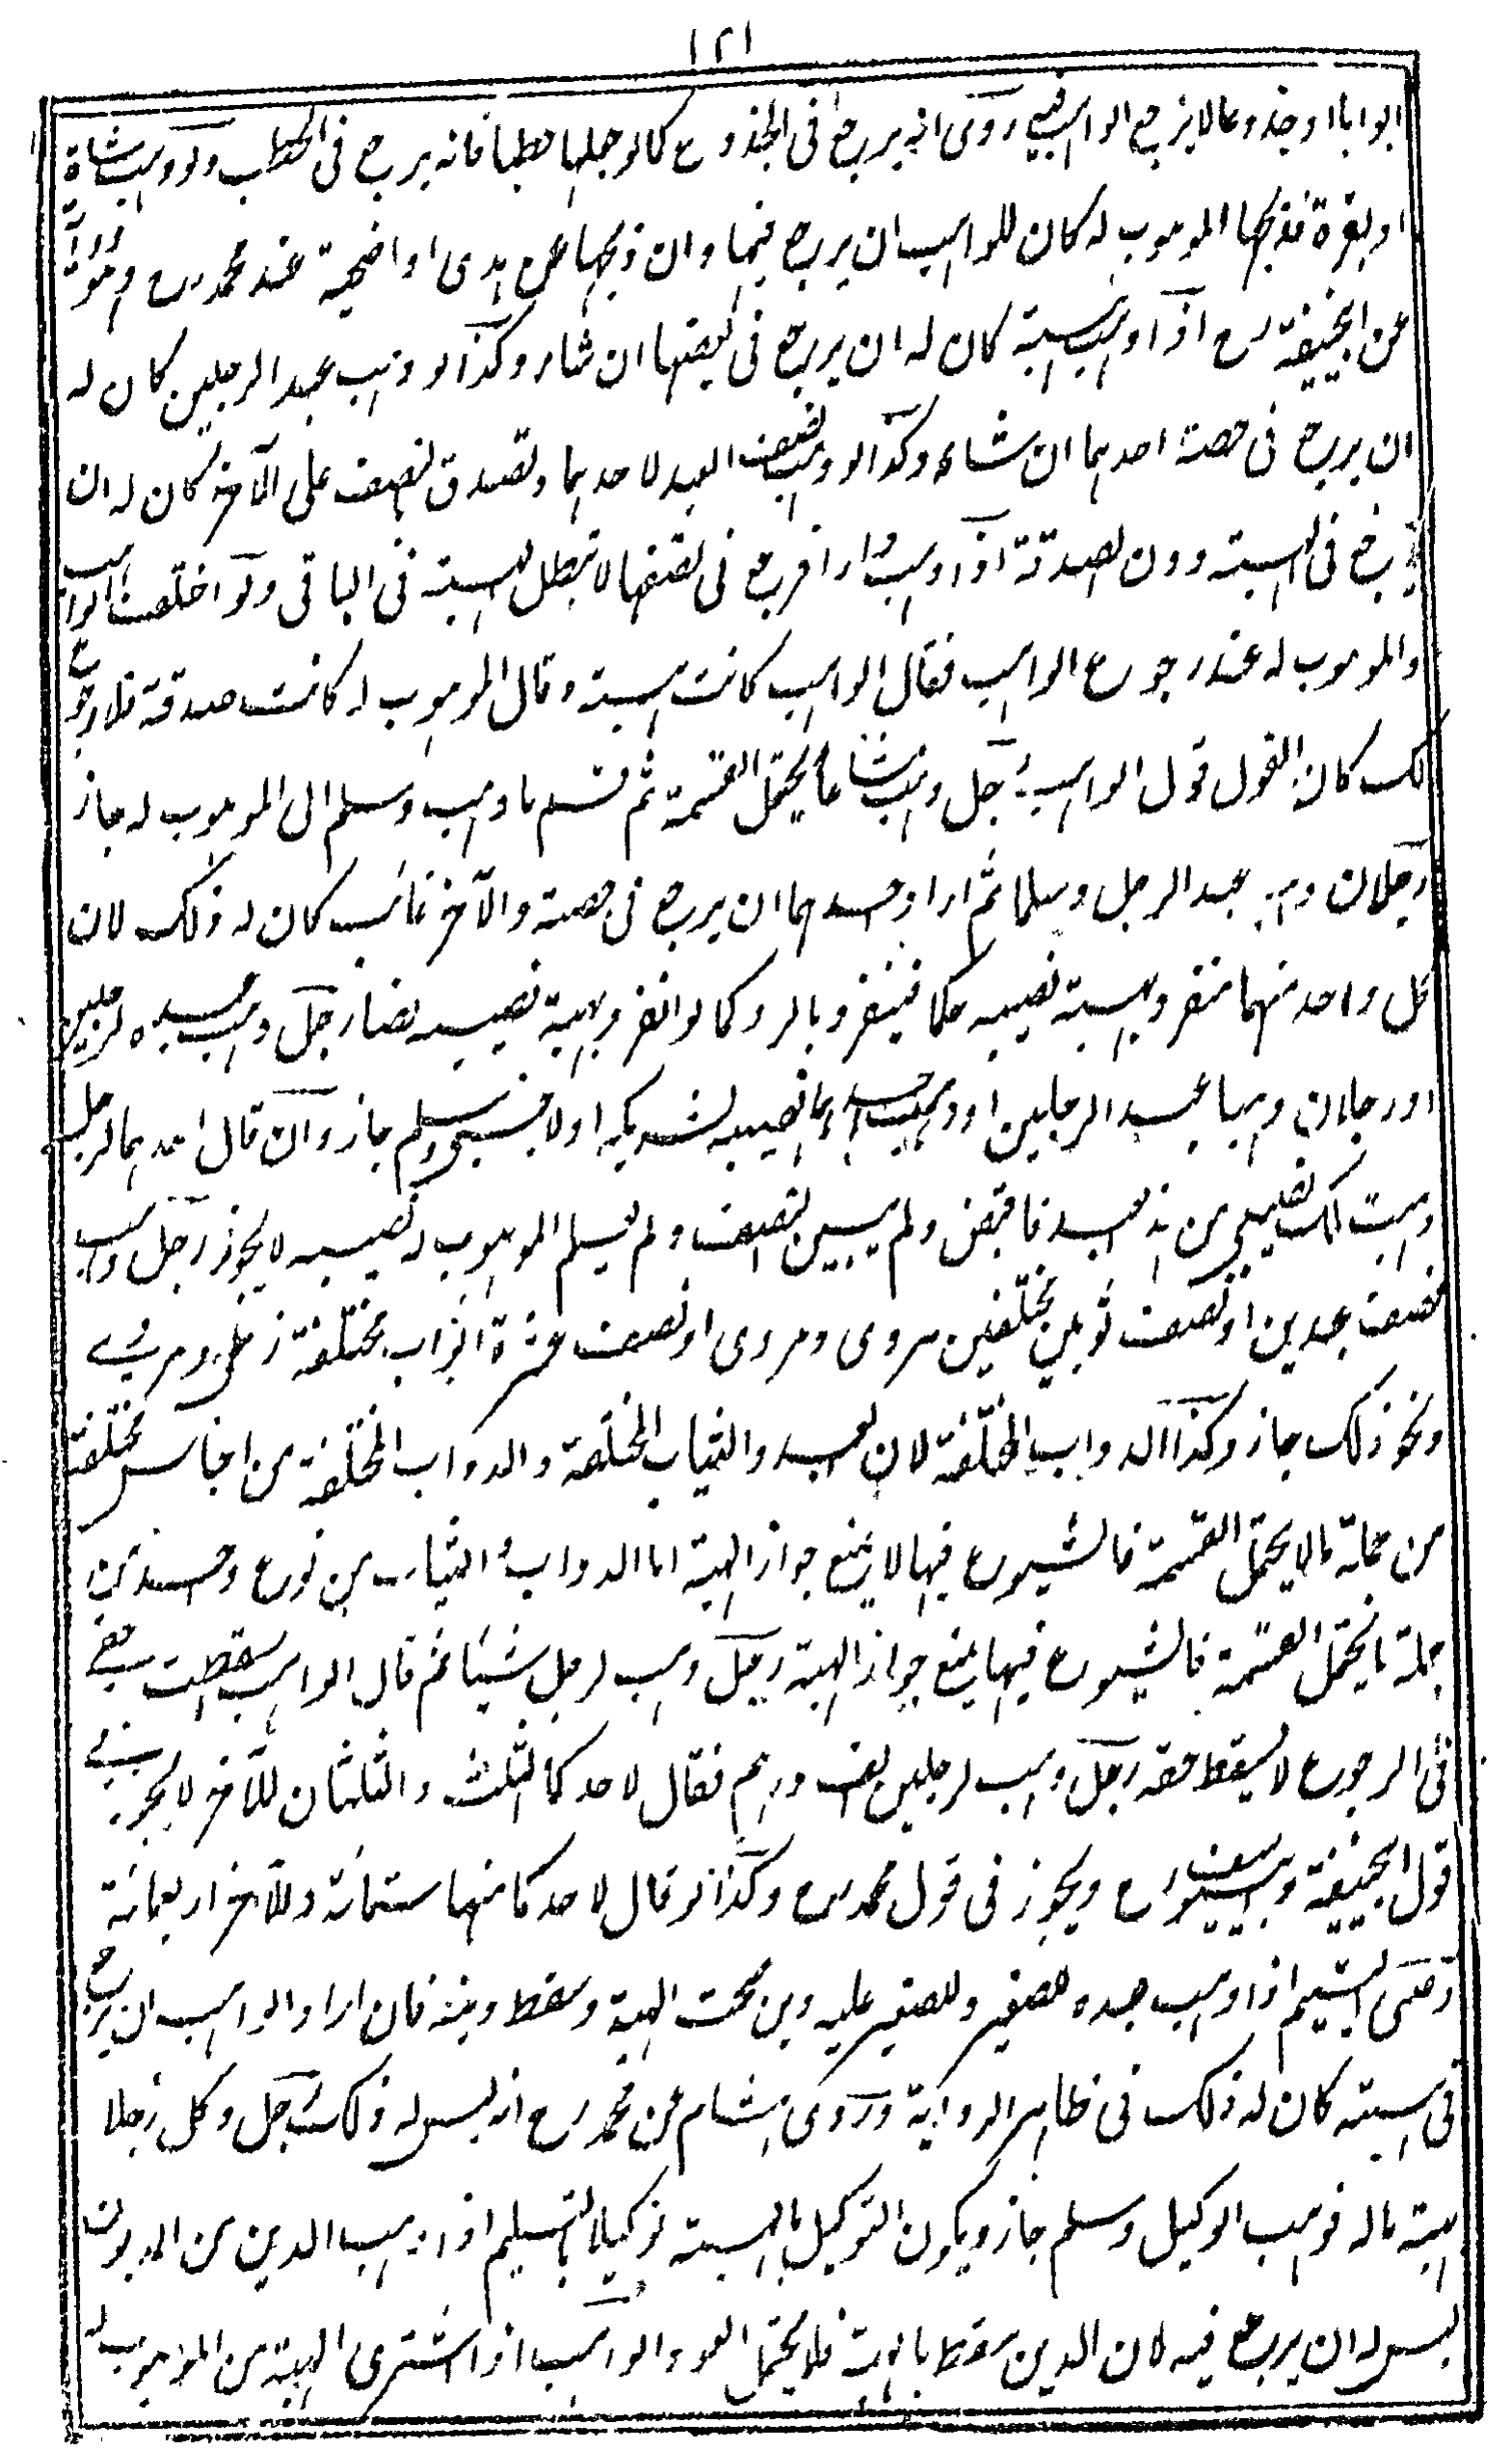 ١٢١
ابوابا او جذوعا لا يرجع الواهب فيه روى انه يرجع فى الجذوع كما لو جعلها حطبا فانه يرجع فى الحطب ولو وهب شاة
او بقرة فذبحها الموهوب له كان للواهب ان يرجع فيها وان ذبحها عن هدى او اضحية عند محمد رح وهو رواية
عن ابى حنيفة رح اذا وهب هبة كان له ان يرجع فى نصفها ان شاء وكذا لو وهب عبدا لرجلين كان له
ان يرجع فى حصة احدهما ان شاء وكذا لو وهب نصف العبد لاحدهما وتصدق بنصف على الآخر كان له ان
يرجع فى الهبة دون الصدقة اذا وهب دارا فرجع فى نصفها لا تبطل الهبة فى الباقى ولو اختلف الواهب
والموهوب له عند رجوع الواهب فقال الواهب كانت هبة وقال الموهوب له كانت صدقة فلا رجوع
لك كان القول قول الواهب رجل وهب مشاعا يحتمل القسمة ثم قسم ما وهب وسلم الى الموهوب له جاز
رجلان وهبا عبدا لرجل وسلما ثم اراد احدهما ان يرجع فى حصته والآخر غائب كان له ذلك لان
كل واحد منهما منفرد بهبة نصيبه حكما فينفرد بالرد كما لو انفرد بهبة نصيبه نصا رجل وهب عبده لرجلين
او رجلان وهبا عبدا لرجلين او وهب احدهما نصيبه لشريكه او لاجنبى وسلم جاز وان قال احدهما لرجل
وهبت لك نصيبى من هذا العبد فاقبض ولم يبين النصيب ولم يعلم الموهوب له نصيبه لا يجوز رجل وهب
نصف عبدين او نصف ثوبين مختلفين هروى ومروى او نصف عشرة اثواب مختلفة زطى ومروى
ونحو ذلك جاز وكذا الدواب المختلفة لان العبيد والثياب المختلفة والدواب المختلفة من اجناس مختلفة
من جملة ما لا يحتمل القسمة فالشيوع فيها لا يمنع جواز الهبة اما الدواب والثياب من نوع واحد فمن
جملة ما يحتمل القسمة فالشيوع فيها يمنع جواز الهبة رجل وهب لرجل شيئا ثم قال الواهب اسقطت حقى
فى الرجوع لا يسقط حقه رجل وهب لرجلين الف درهم فقال لاحدكما الثلث والثلثان للآخر لا يجوز فى
قول ابى حنيفة وابى يوسف رح ويجوز فى قول محمد رح وكذا لو قال لاحدكما منها ستمائة وللآخر اربعمائة
وصى اليتيم اذا وهب عبده للصغير وللصغير عليه دين صحت الهبة وسقط دينه فان اراد الواهب ان يرجع
فى هبته كان له ذلك فى ظاهر الرواية وروى هشام عن محمد رح انه ليس له ذلك رجل وكل رجلا
بهبة ماله فوهب الوكيل وسلم جاز ويكون التوكيل بالهبة توكيلا بالتسليم اذا وهب الدين من المديون
ليس له ان يرجع فيه لان الدين سقط بالهبة فلا يحتمل العود الواهب اذا اشترى الهبة من الموهوب له